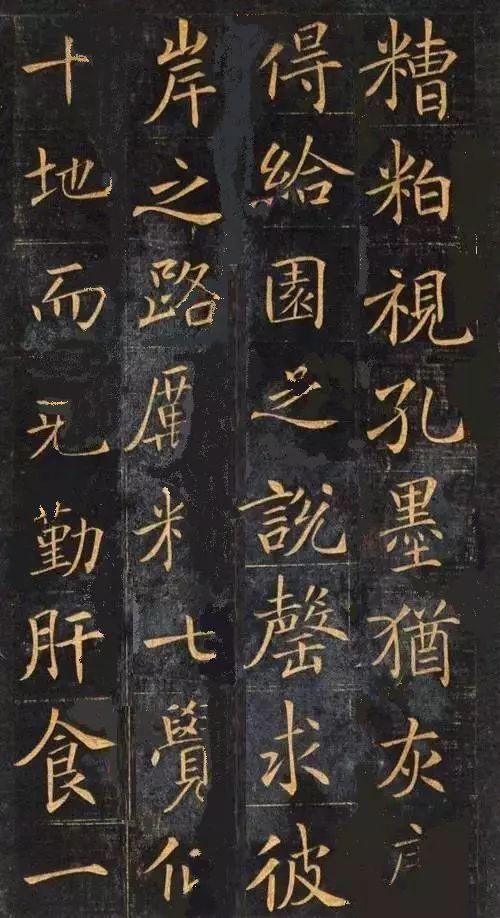 糟粕視孔墨猶灰
得給園之說罄求彼
岸之路厲米七覺
十地而勤肝食一